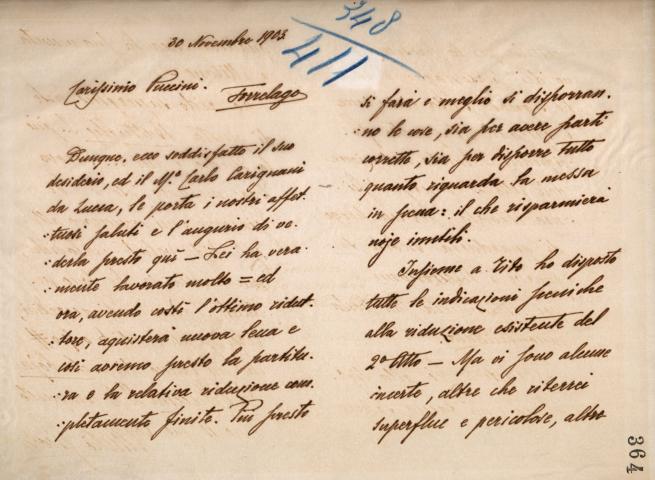 348
411
30 Novembre 1903
Carissimo Puccini.
Torrelago
Dunque, ecco soddisfatto il suo
desiderio, ed il Mo Carlo Carignani
da Lucca, le porta i nostri affet-
:tuosi saluti e l'augurio di ve-
:derla presto quì — Lei ha vera-
:mente lavorato molto = ed
ora, avendo costì l'ottimo ridut-
:tore, aquisterà nuova lena e
così avremo presto la partitu-
:ra e la relativa riduzione com-
:pletamente finite. Più presto
si farà e meglio si disporran-
no le cose, sia per avere parti
corrette, sia per disporre tutto
quanto riguarda la messa
in scena: il che risparmierà
noje inutili.
Insieme a Tito ho disposto
tutte le indicazioni sceniche
alla riduzione esistente del
2o Atto — Ma vi sono alcune
incerte, altre che riterrei
superflue e pericolose, altre
364